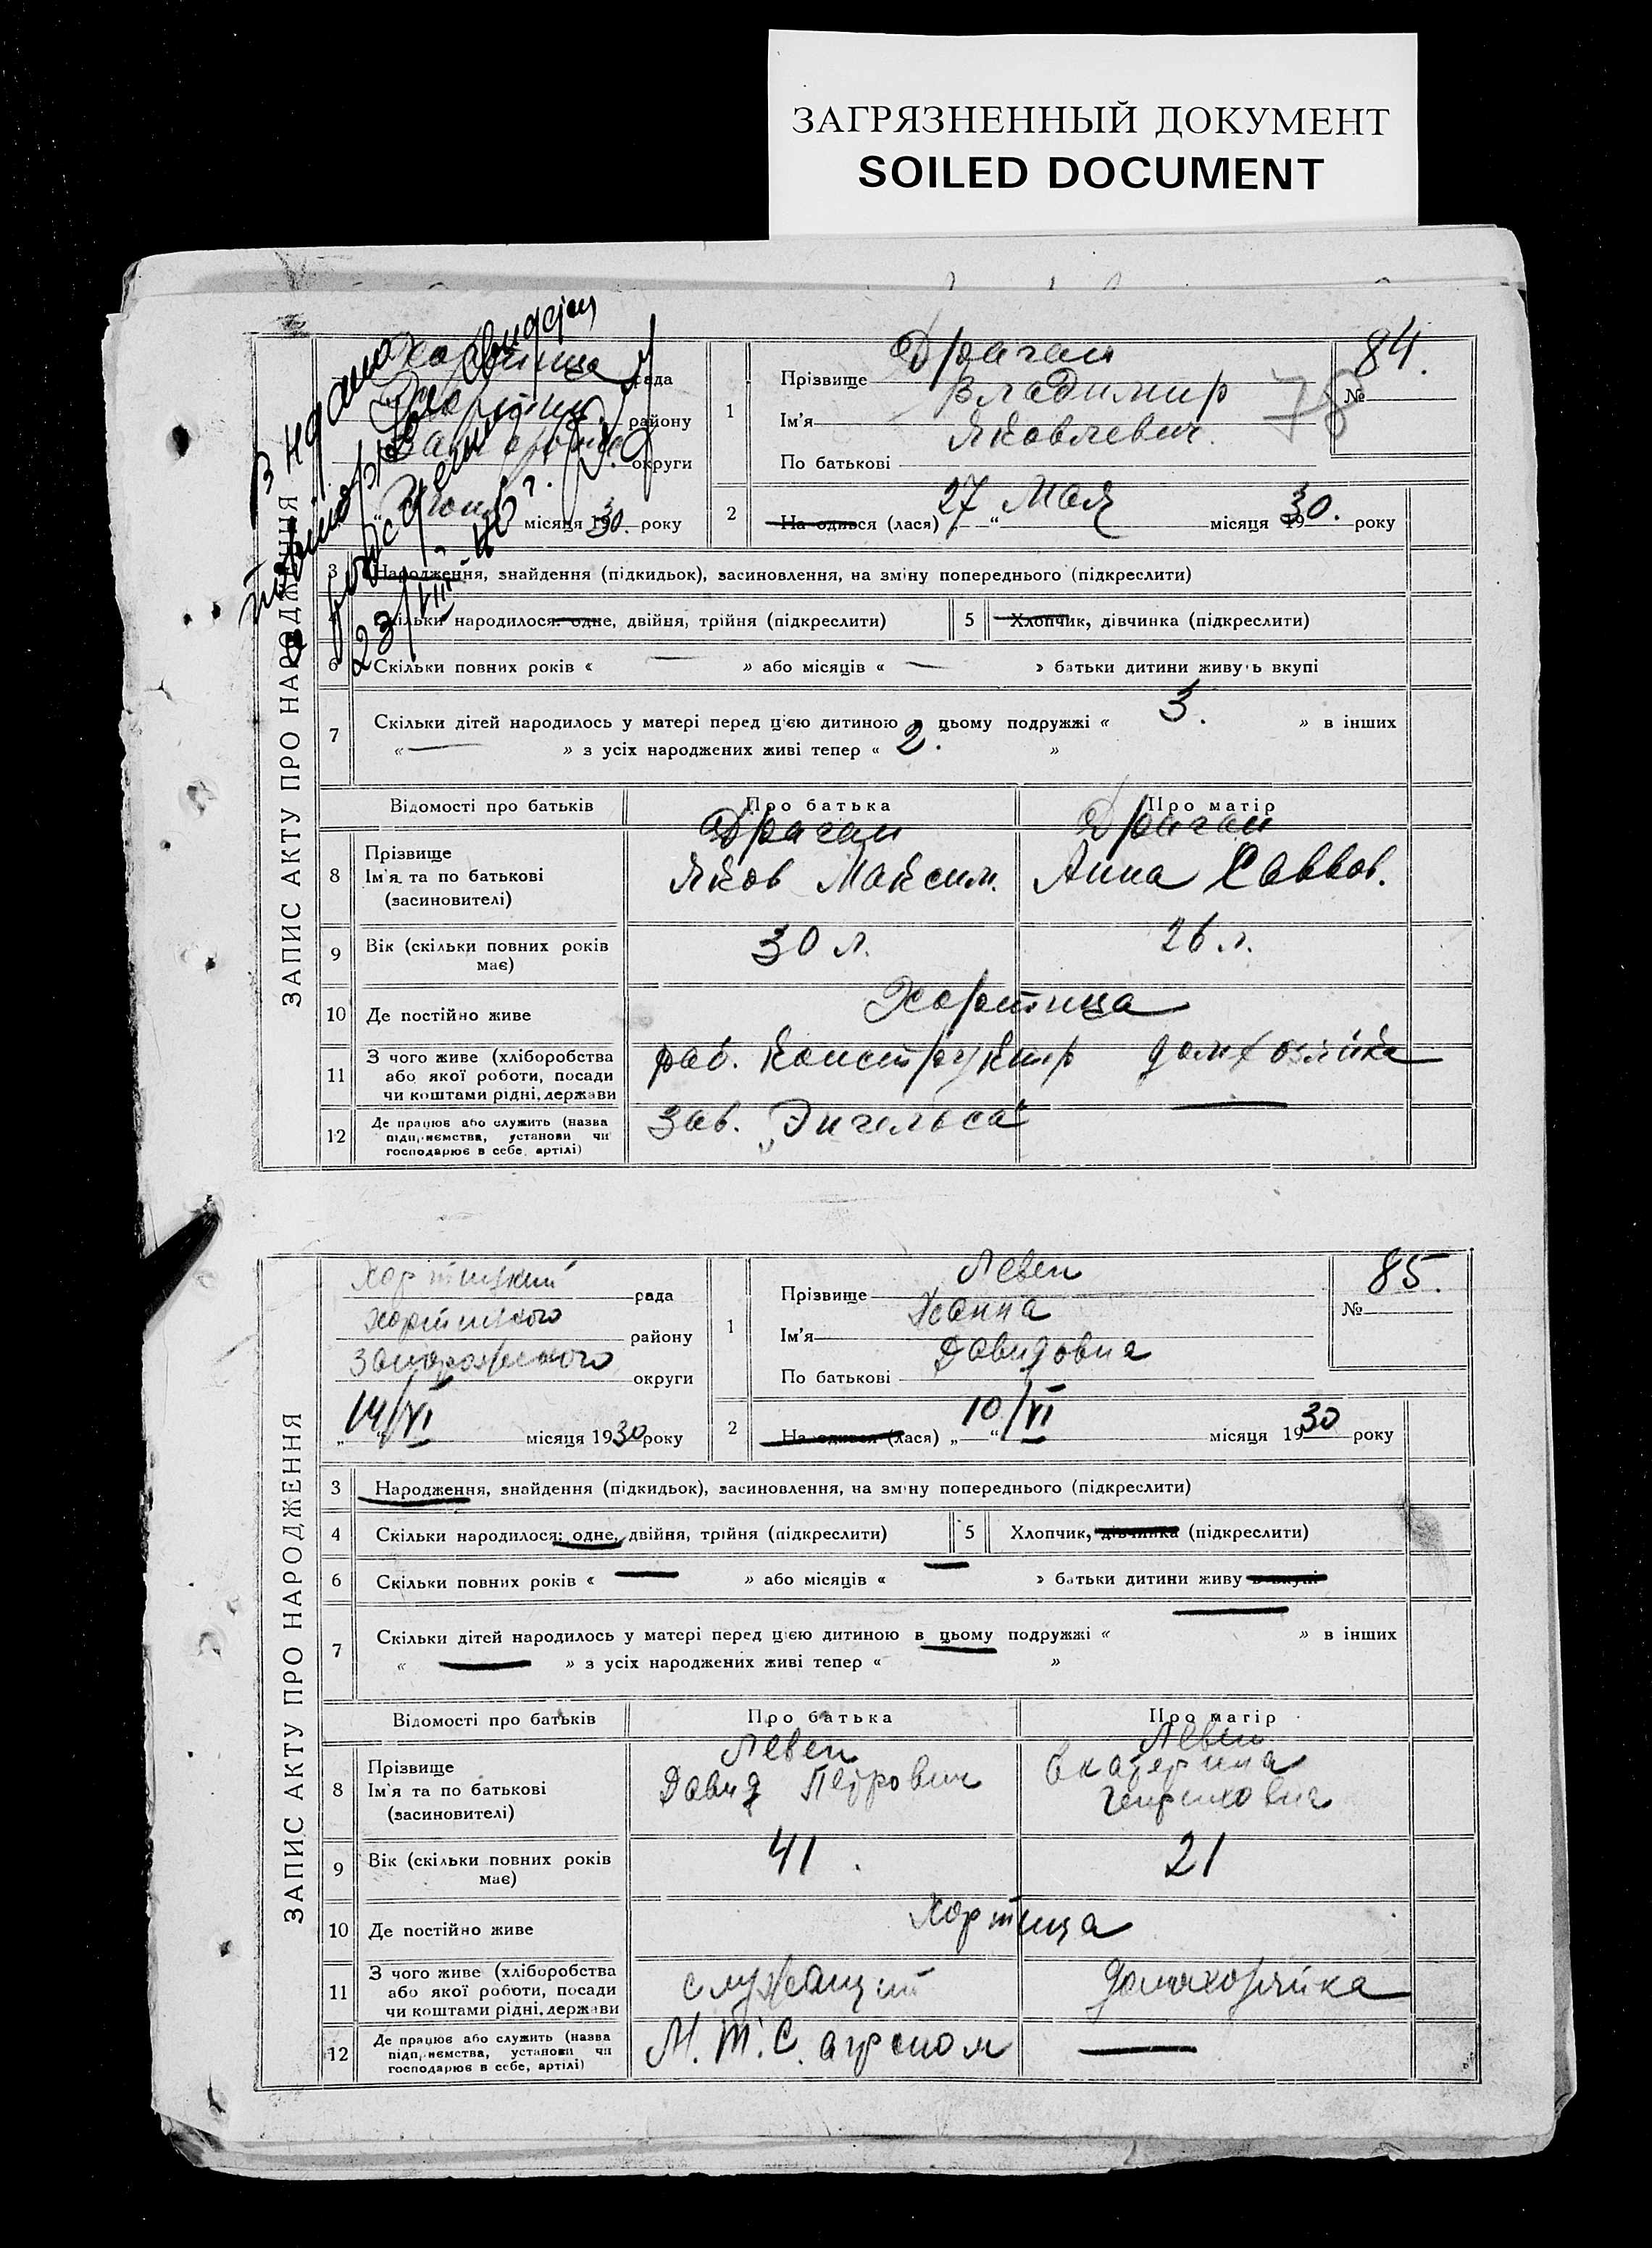 ЗАГРЯЗНЕННЫЙ ДОКУМЕНТ
SOILED DOCUMENT
ЗАПИС АКТУ ПРО НАРОДЖЕННЯ
рада
району
округи
місяця 1930. року
23/VIII-40 г.
84.
№
78
1
Прізвище Драган
Ім'я Владимир
По батькові Яковлевич.
2 На одився (лася) „27 “ Мая місяця 1930. року
3 Народження, знайдення (підкидьок), засиновлення, на зміну попереднього (підкреслити)
4 Скільки народилося: одне, двійня, трійня (підкреслити) 5 Хлопчик, дівчинка (підкреслити)
6 Скільки повних років « — » або місяців « — » батьки дитини живуть вкупі
7 Скільки дітей народилось у матері перед цією дитиною в цьому подружжі « 3. » в інших
« — » з усіх народжених живі тепер « 2. »
Відомості про батьків Про батька Про матір
8 Прізвище Драган Драган
Ім'я та по батькові Яков Максим. Анна Саввов.
(засиновителі)
9 Вік (скільки повних років має) 30 л. 26 л.
10 Де постійно живе Хортица
11 З чого живе (хліборобства або якої роботи, посади чи коштами рідні, держави раб. конструктор домхозяйка
12 Де працює або служить (назва підприємства, установи чи господарює в себе, артілі) зав. „Энгельса“ —
ЗАПИС АКТУ ПРО НАРОДЖЕННЯ
Хортицкий рада
Хортицкого району
Запорожского округи
„14/VI місяця 1930 року
85.
№
1
Прізвище Левен
Ім'я Жанна
По батькові Давидовна
2 На одився (лася) „ 10/VI місяця 1930 року
3 Народження, знайдення (підкидьок), засиновлення, на зміну попереднього (підкреслити)
4 Скільки народилося: одне, двійня, трійня (підкреслити) 5 Хлопчик, дівчинка (підкреслити)
6 Скільки повних років « — » або місяців « — » батьки дитини живу в вкупі
7 Скільки дітей народилось у матері перед цією дитиною в цьому подружжі « — » в інших
« — » з усіх народжених живі тепер « »
Відомості про батьків Про батька Про матір
8 Прізвище Левен Левен
Ім'я та по батькові Давид Петрович Екатерина
(засиновителі) Генриховна
9 Вік (скільки повних років має) 41 21
10 Де постійно живе Хортица
11 З чого живе (хліборобства або якої роботи, посади чи коштами рідні, держави служащий домохозяйка
12 Де працює або служить (назва підприємства, установи чи господарює в себе, артілі) М.Т.С. агроном —